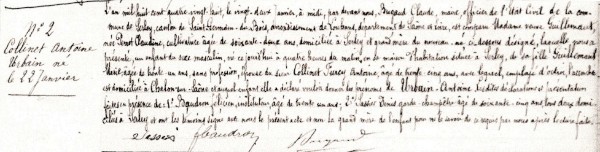 N° 2
Collinet Antoine
Urbain né
le 22 Janvier
L'an mil huit cent quatre vingt huit, le vingt deux janvier, à midi, par devant nous, Claude, maire, officier de l'état Civil de la com
mune de Serley, canton de Saint Germain du Bois, arrondissement de Louhans, département de Saône et Loire, est comparu Madame veuve Guillemaut,
née Claudine, cultivatrice âgée de soixante deux ans domiciliée à Serley et grand mère du nouveau né ci-dessous désigné, laquelle nous a
présenté, un enfant du sexe masculin, né ce jourd'hui à quatre heures du matin, en la maison d'habitation sidise à Serley, de sa fille Guillemaut
âgée de trente un ans, sans profession, épouse du sieur Collinet Antoine, âgé de trente cinq ans, avec lequel, employé d'octroi,
est domiciliée à Chalon sur Saône et auquel enfant elle a déclaré vouloir donner les prénoms de Urbain Antoine. Lesdites déclaration et présentation
faites en présence de 1° Baudron, instituteur, âgé de trente un ans; 2° Sassier Denis garde champêtre âgé de soixante cinq ans tous deux domi
ciliés à Serley et ont les témoins signé avec nous le présent acte et non la grand mère de l'enfant pour ne le savoir de ce requise par nous après lecture faite.
Baudron